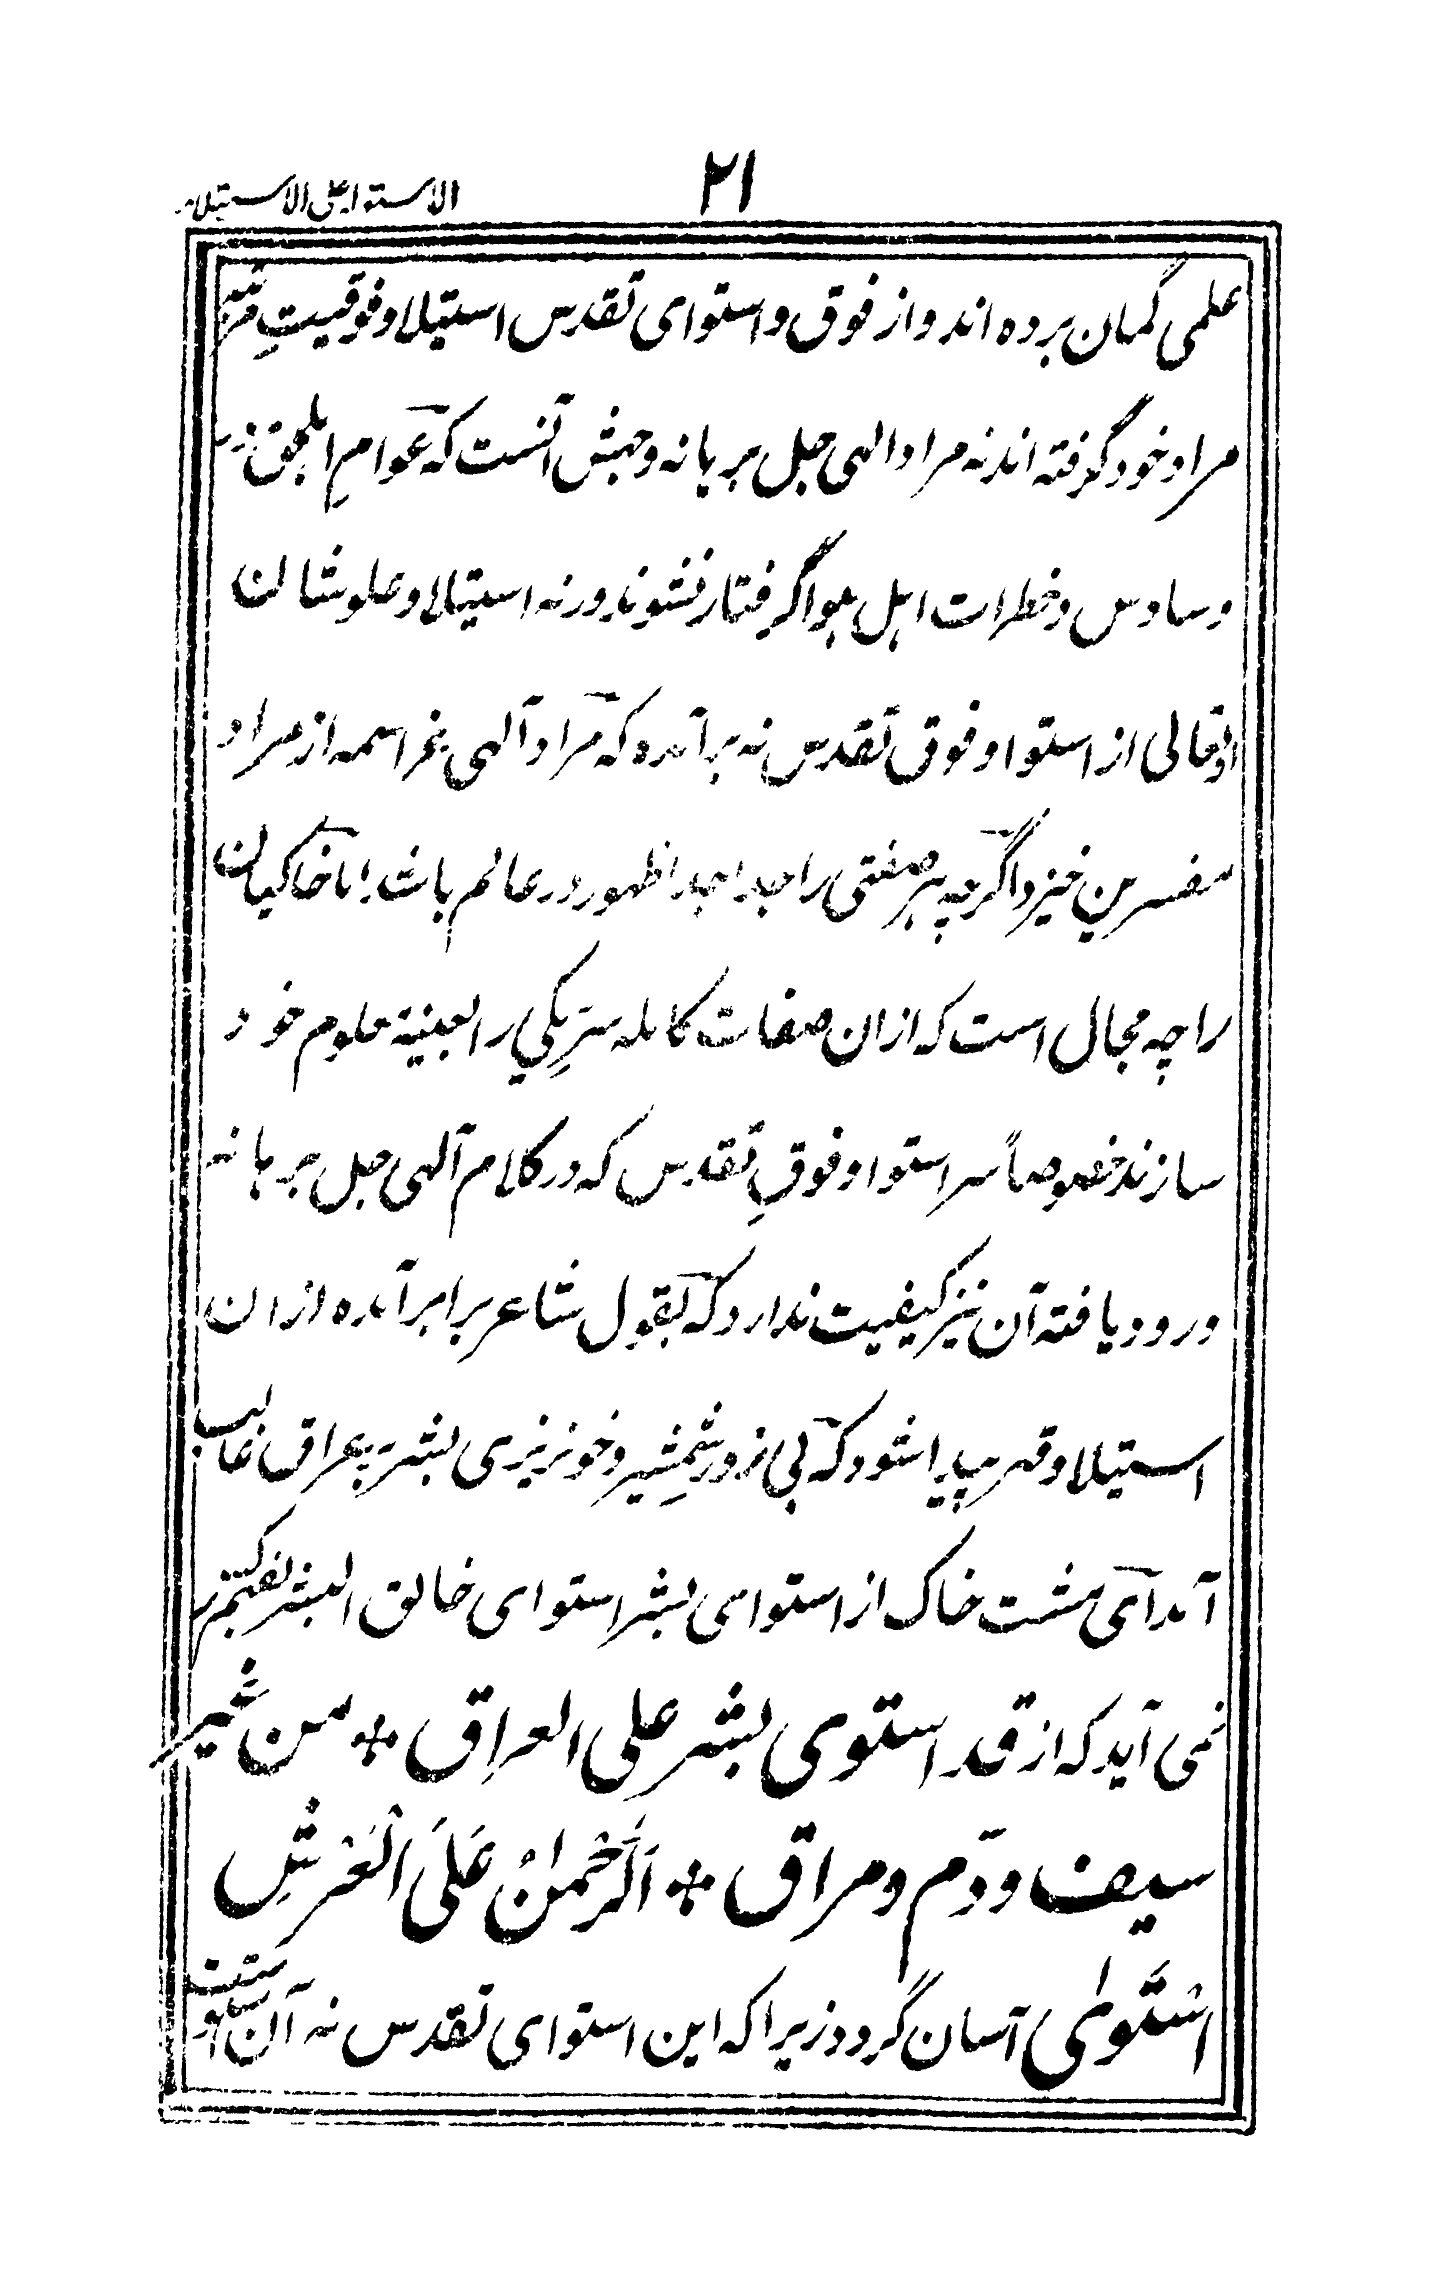 ۲۱
الاستواء علی الاستیلاء
علمی گمان برده اند و از فوق و استوای تقدس استیلا و فوقیتِ مرتبه
مراد خود گرفته اند نه مراد الٰهی جل برهانه و جهش آنست که عوامِ اهلِ حق در
وساوس و خطرات اهل هوا گرفتار نشوند ورنه استیلا و علو شان
او تعالی از استوا و فوق تقدس نه برآمده که مراد آلهی عز اسمه از مراد
مفسرین خیزد اگرچه هر صفتی را جدا جدا ظهور در عالم باشد اما خاکیان
را چه مجال است که ازان صفات کامله سرِّ یکی را بعینیة معلوم خود
سازند خصوصاً سر استوا و فوقِ تقدس که در کلام آلهی جل برهانه
ورود یافته آن نیز کیفیت ندارد که بقول شاعر برابر آمده ازان
استیلا و قهر پیدا شود که بی زور شمشیر و خونریزی بشر بر عراق غالب
آمد ای مشت خاک از استوای بشر استوای خالق البشر
نمی آید که از قد استوی بشر علی العراق ❊ من غیر
سیف و دم و مراق ❊ اَلرَّحْمٰنُ عَلَی الْعَرْشِ
اسْتَوٰی آسان گرود زیرا که این استوای تقدس نه آن استواست